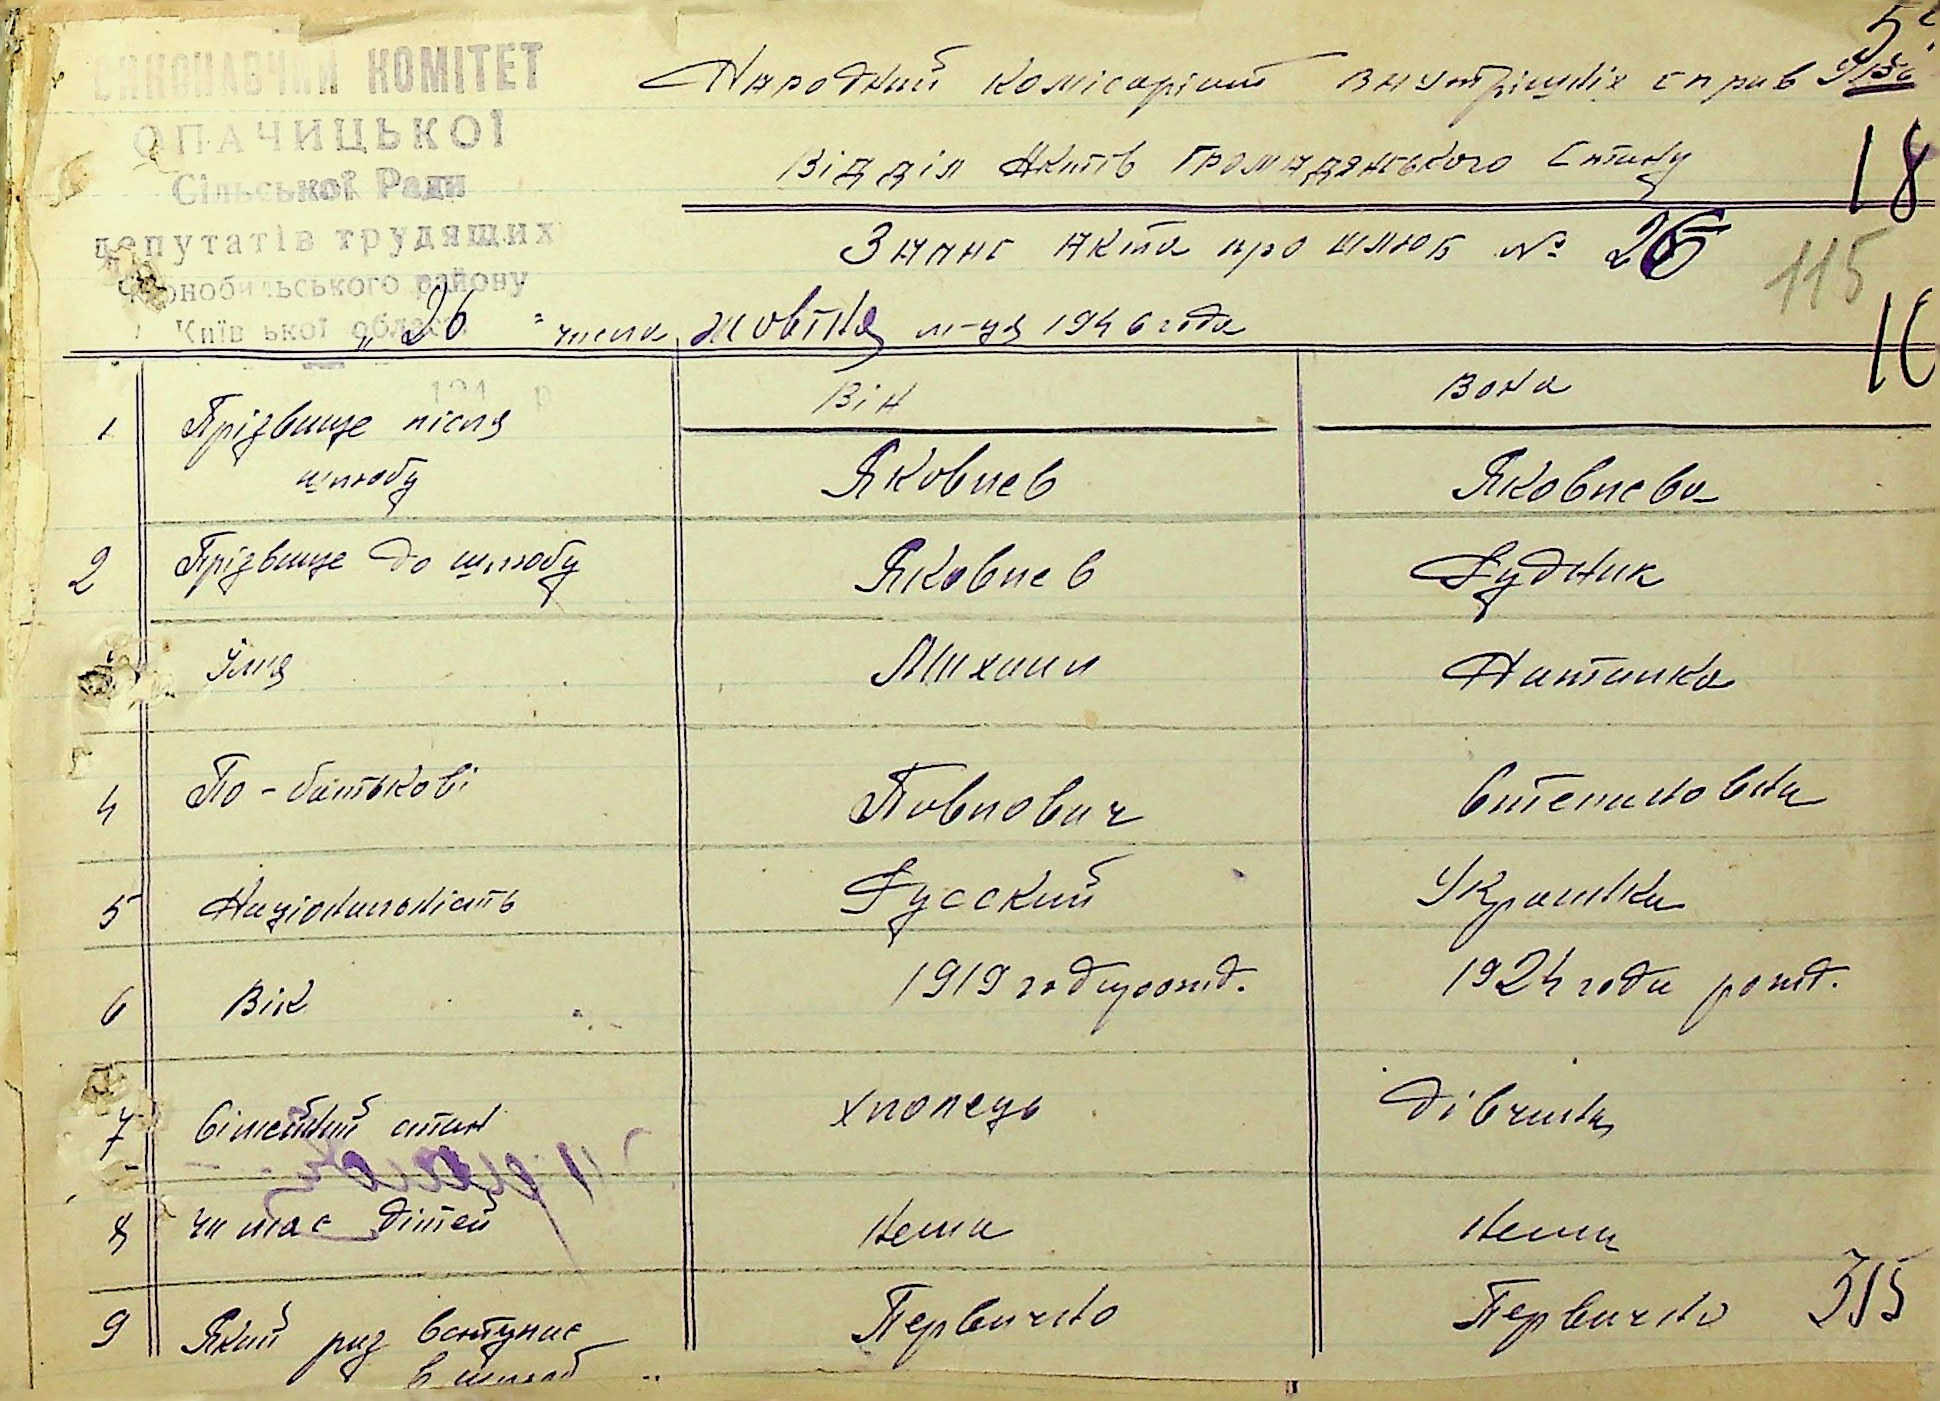 ВИКОНАВЧИЙ КОМІТЕТ
ОПАЧИЦЬКОЇ
Сільської Ради
депутатів трудящих
Чорнобильського району
Київської області
194 р
Народний комісаріат внутрішніх справ
Відділ Актів Громадянського Стану
18
Запис акта про шлюб № 26
115
"26" числа жовтня м-ця 1946 года
16
Він
Вона
1 Прізвище після шлюбу
Яковлев
Яковлева
2 Прізвище до шлюбу
Яковлев
Рудник
Імя
Михаил
Наталка
4 По-батькові
Павлович
Степановна
5 Національність
Русский
Украинка
6 Вік
1919 года рожд.
1924 года рожд.
7 Сімейний стан
хлопець
дівчина
8 Чи має дітей
Нема
Нема
9 Який раз вступає
в шлюб
Первично
Первично
315